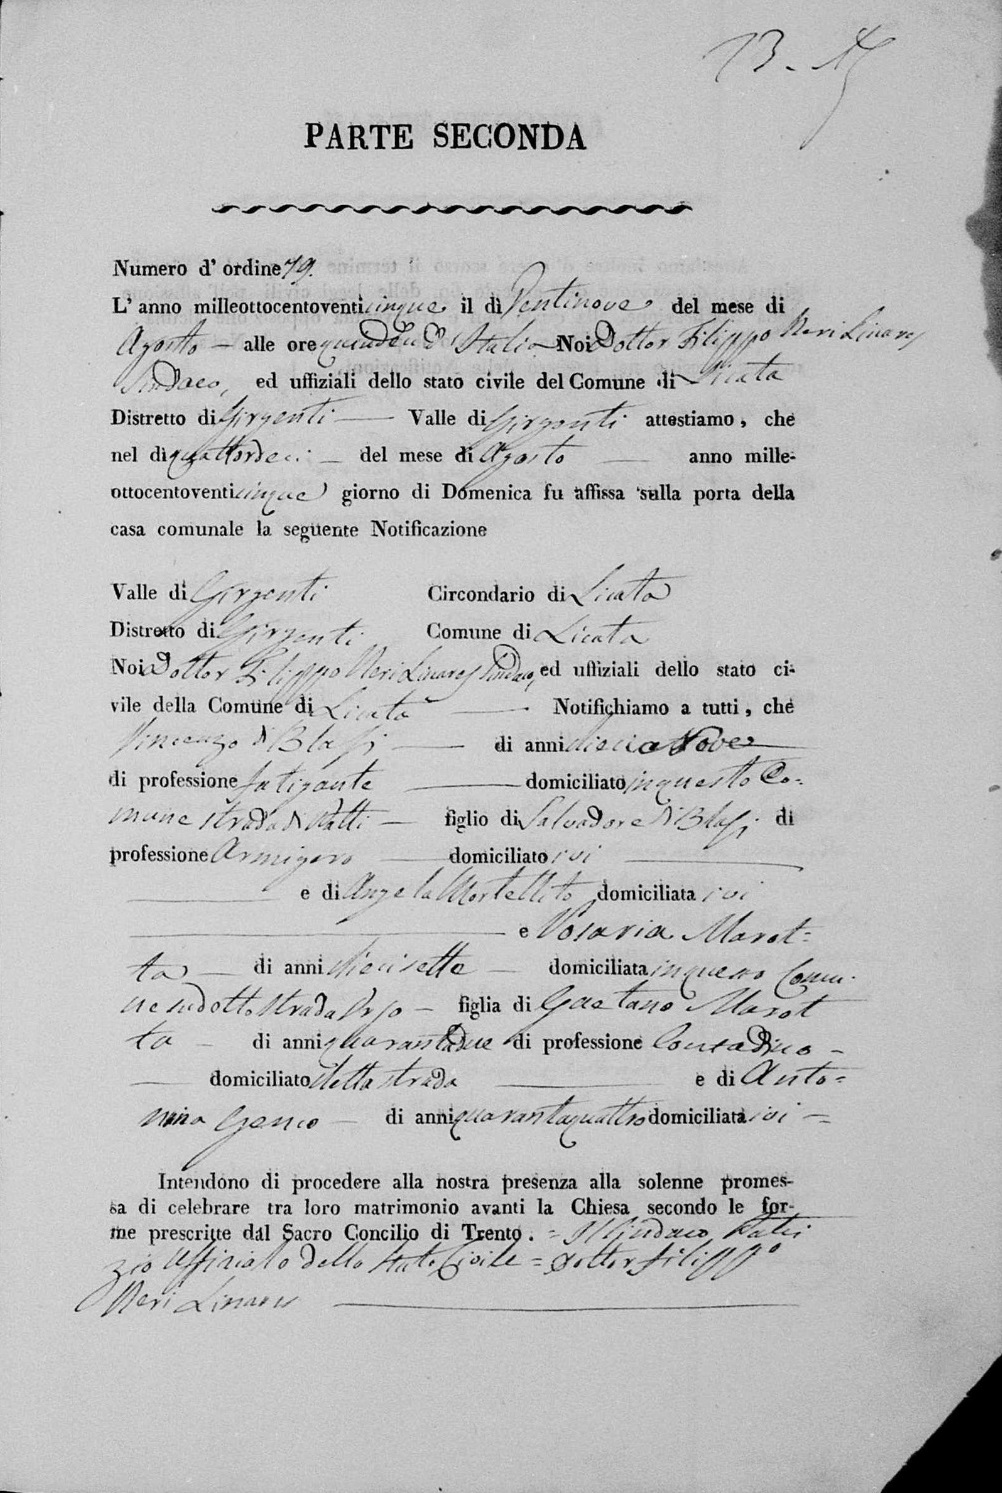 13 -
PARTE SECONDA
Numero d' ordine 79.
L' anno milleottocentoventicinque il dì Ventinove del mese di
Agosto - alle ore quindeci d'Italia Noi Dottor Filippo Neri Linares
Sindaco, ed uffiziali dello stato civile del Comune di Licata
Distretto di Girgenti - Valle di Girgenti attestiamo, che
nel dì quattordeci - del mese di Agosto - anno mille-
ottocentoventicinque giorno di Domenica fu affissa sulla porta della
casa comunale la seguente Notificazione
Valle di Girgenti Circondario di Licata
Distretto di Girgenti Comune di Licata
Noi Dottor Filippo Neri Linares Sindaco, ed uffiziali dello stato ci-
vile della Comune di Licata - Notifichiamo a tutti, che
Vincenzo di Blasi - di anni diecinove
di professione fatigante - domiciliato in questo Co-
mune strada di Patti - figlio di Salvadore di Blasi di
professione Armigero - domiciliato ivi -
- e di Angela Mortellito domiciliata ivi
- e Rosaria Marot=
ta - di anni diecisette - domiciliata in questo Comu-
ne sudetto strada - figlia di Gaetano Marot
ta - di anni quarantadue di professione Contadino -
- domiciliato detta strada - e di Anto=
nina Genco - di anni quarantaquattro domiciliata ivi =
Intendono di procedere alla nostra presenza alla solenne promes-
sa di celebrare tra loro matrimonio avanti la Chiesa secondo le for-
me prescritte dal Sacro Concilio di Trento. = Il Sindaco Patri
zio Uffiziale dello Stato Civile = Dottor Filippo
Neri Linares -